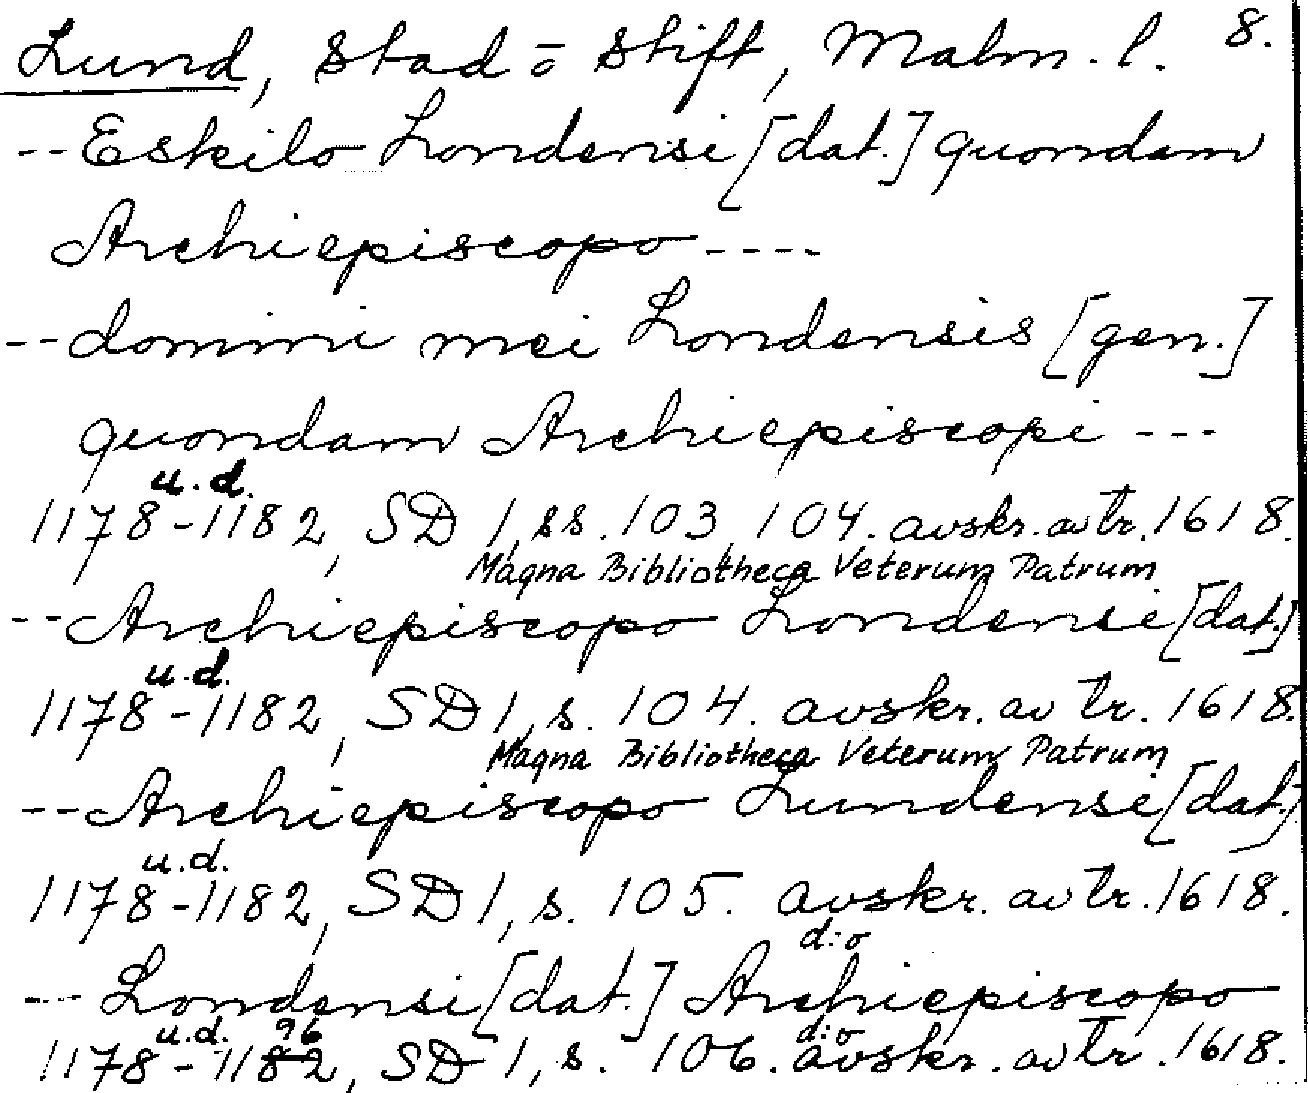 Lund, stad o stift, Malm. l. 8.
-- Eskilo Londensi [dat.] quondam
Archiepiscopo ----
-- domini mei Londensis [gen.]
quondam Archiepiscopi ---
u.d.
1178-1182, SD 1, ss. 103, 104. avskr. av tr. 1618.
Magna Bibliotheca Veterum Patrum
-- Archiepiscopo Londensi [dat.]
u.d.
1178-1182, SD 1, s. 104. avskr. av tr. 1618.
Magna Bibliotheca Veterum Patrum
-- Archiepiscopo Lundensi [dat.]
u.d.
1178-1182, SD 1, s. 105. avskr. av tr. 1618.
d:o
--- Londensi [dat.] Archiepiscopo
u.d. 96 d:o
1178-1182, SD 1, s. 106. avskr. av tr. 1618.